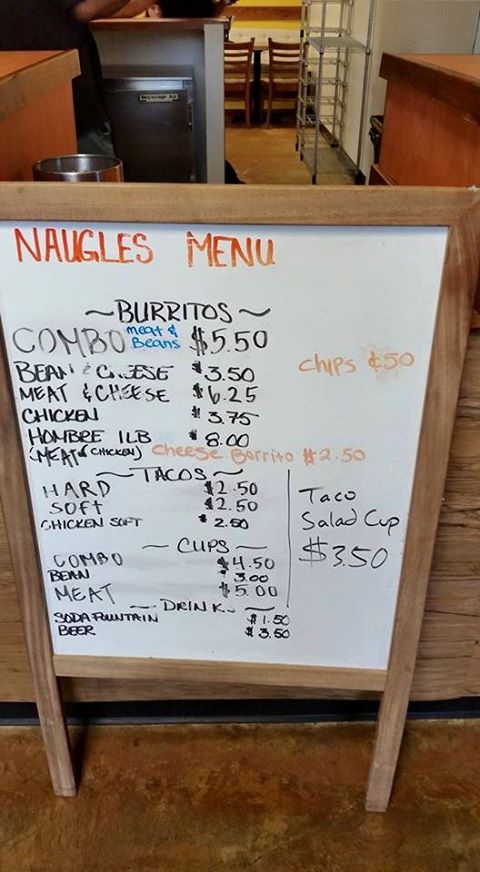 NAUGLES MENU
~BURRITOS~
COMBO meat & Beans $5.50
BEAN & CHEESE $3.50
chips ¢50
MEAT & CHEESE $6.25
CHICKEN $3.75
HOMBRE 1LB $8.00
(MEAT & CHICKEN) cheese Borrito $2.50
~TACOS~
HARD $2.50
SOFT $2.50
CHICKEN SOFT $2.50
Taco
Salad Cup
$3.50
~CUPS~
COMBO $4.50
BEAN $3.00
MEAT $5.00
~DRINKS~
SODA FOUNTAIN $1.50
BEER $3.50
Beverage-Air